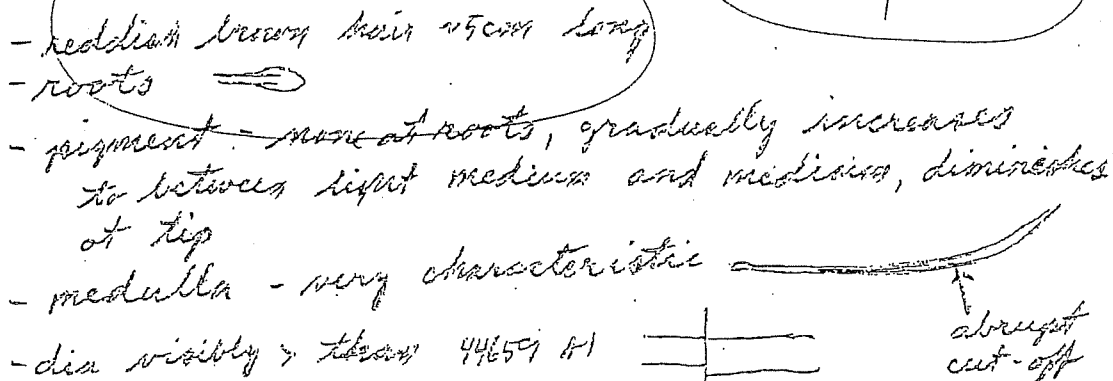 - reddish brown hair ~5cm long
- roots
- pigment - none at roots, gradually increases
to between light medium and medium, diminishes
at tip
- medulla - very characteristic
abrupt
cut-off
- dia visibly > than 44659 H